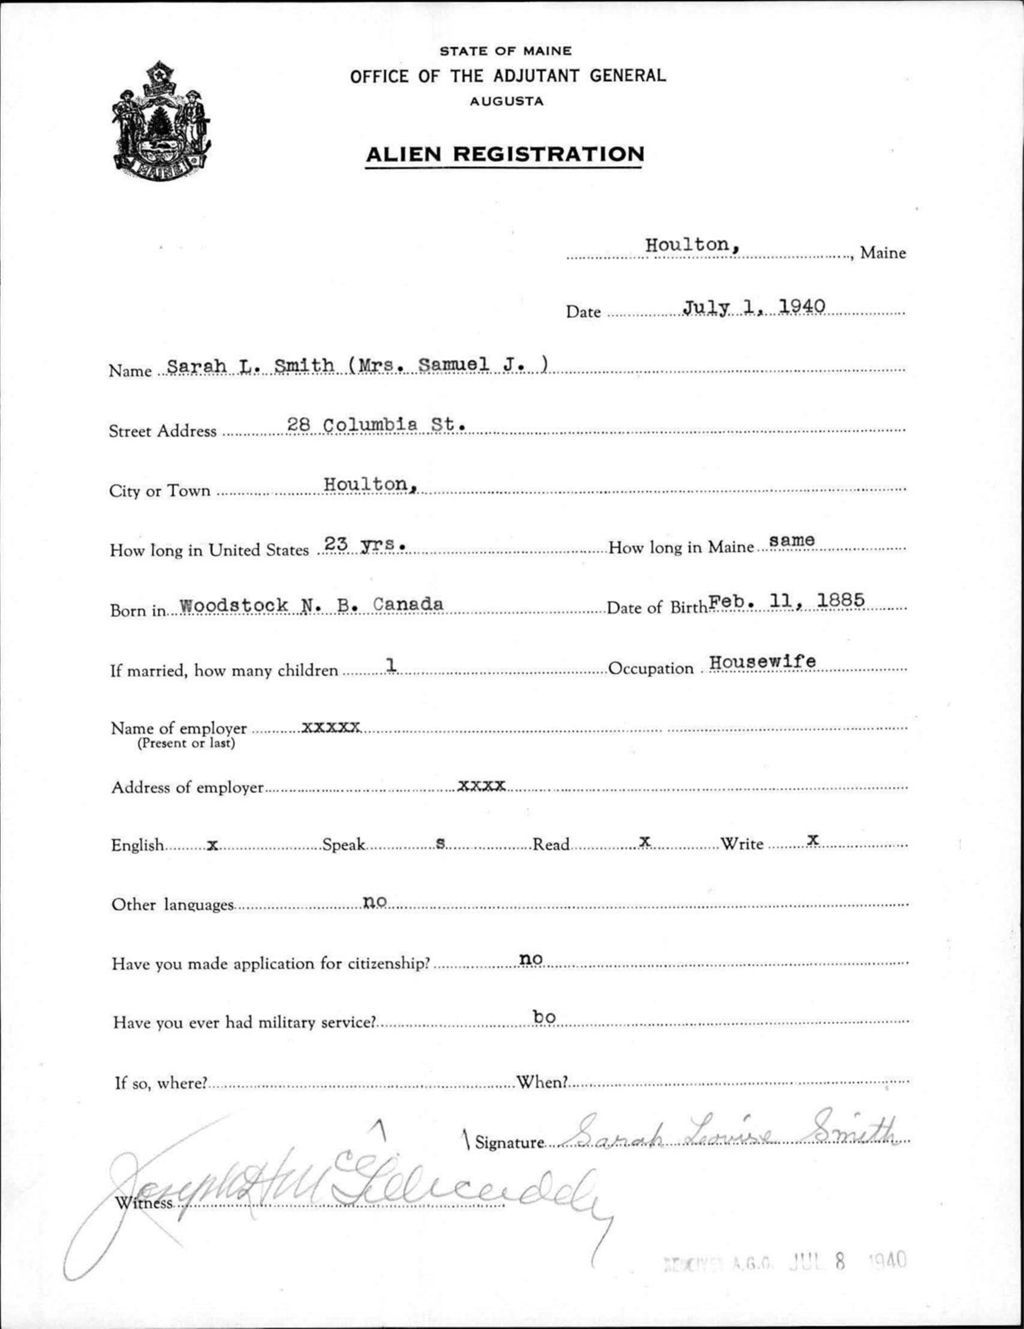 STATE OF MAINE
OFFICE OF THE ADJUTANT GENERAL
AUGUSTA
ALIEN REGISTRATION
MAINE
Houlton, , Maine
Date July 1, 1940
Name Sarah L. Smith (Mrs. Samuel J. )
Street Address 28 Columbia St.
City or Town Houlton,
How long in United States 23 yrs. How long in Maine same
Born in Woodstock N. B. Canada Date of Birth Feb. 11, 1885
If married, how many children 1 Occupation Housewife
Name of employer xxxxx
(Present or last)
Address of employer xxxx
English x Speak s Read X Write X
Other languages no
Have you made application for citizenship? no
Have you ever had military service? bo
If so, where? When?
Signature Sarah Louise Smith
Witness Joseph H Mc
A.G.O. JUL 8 1940